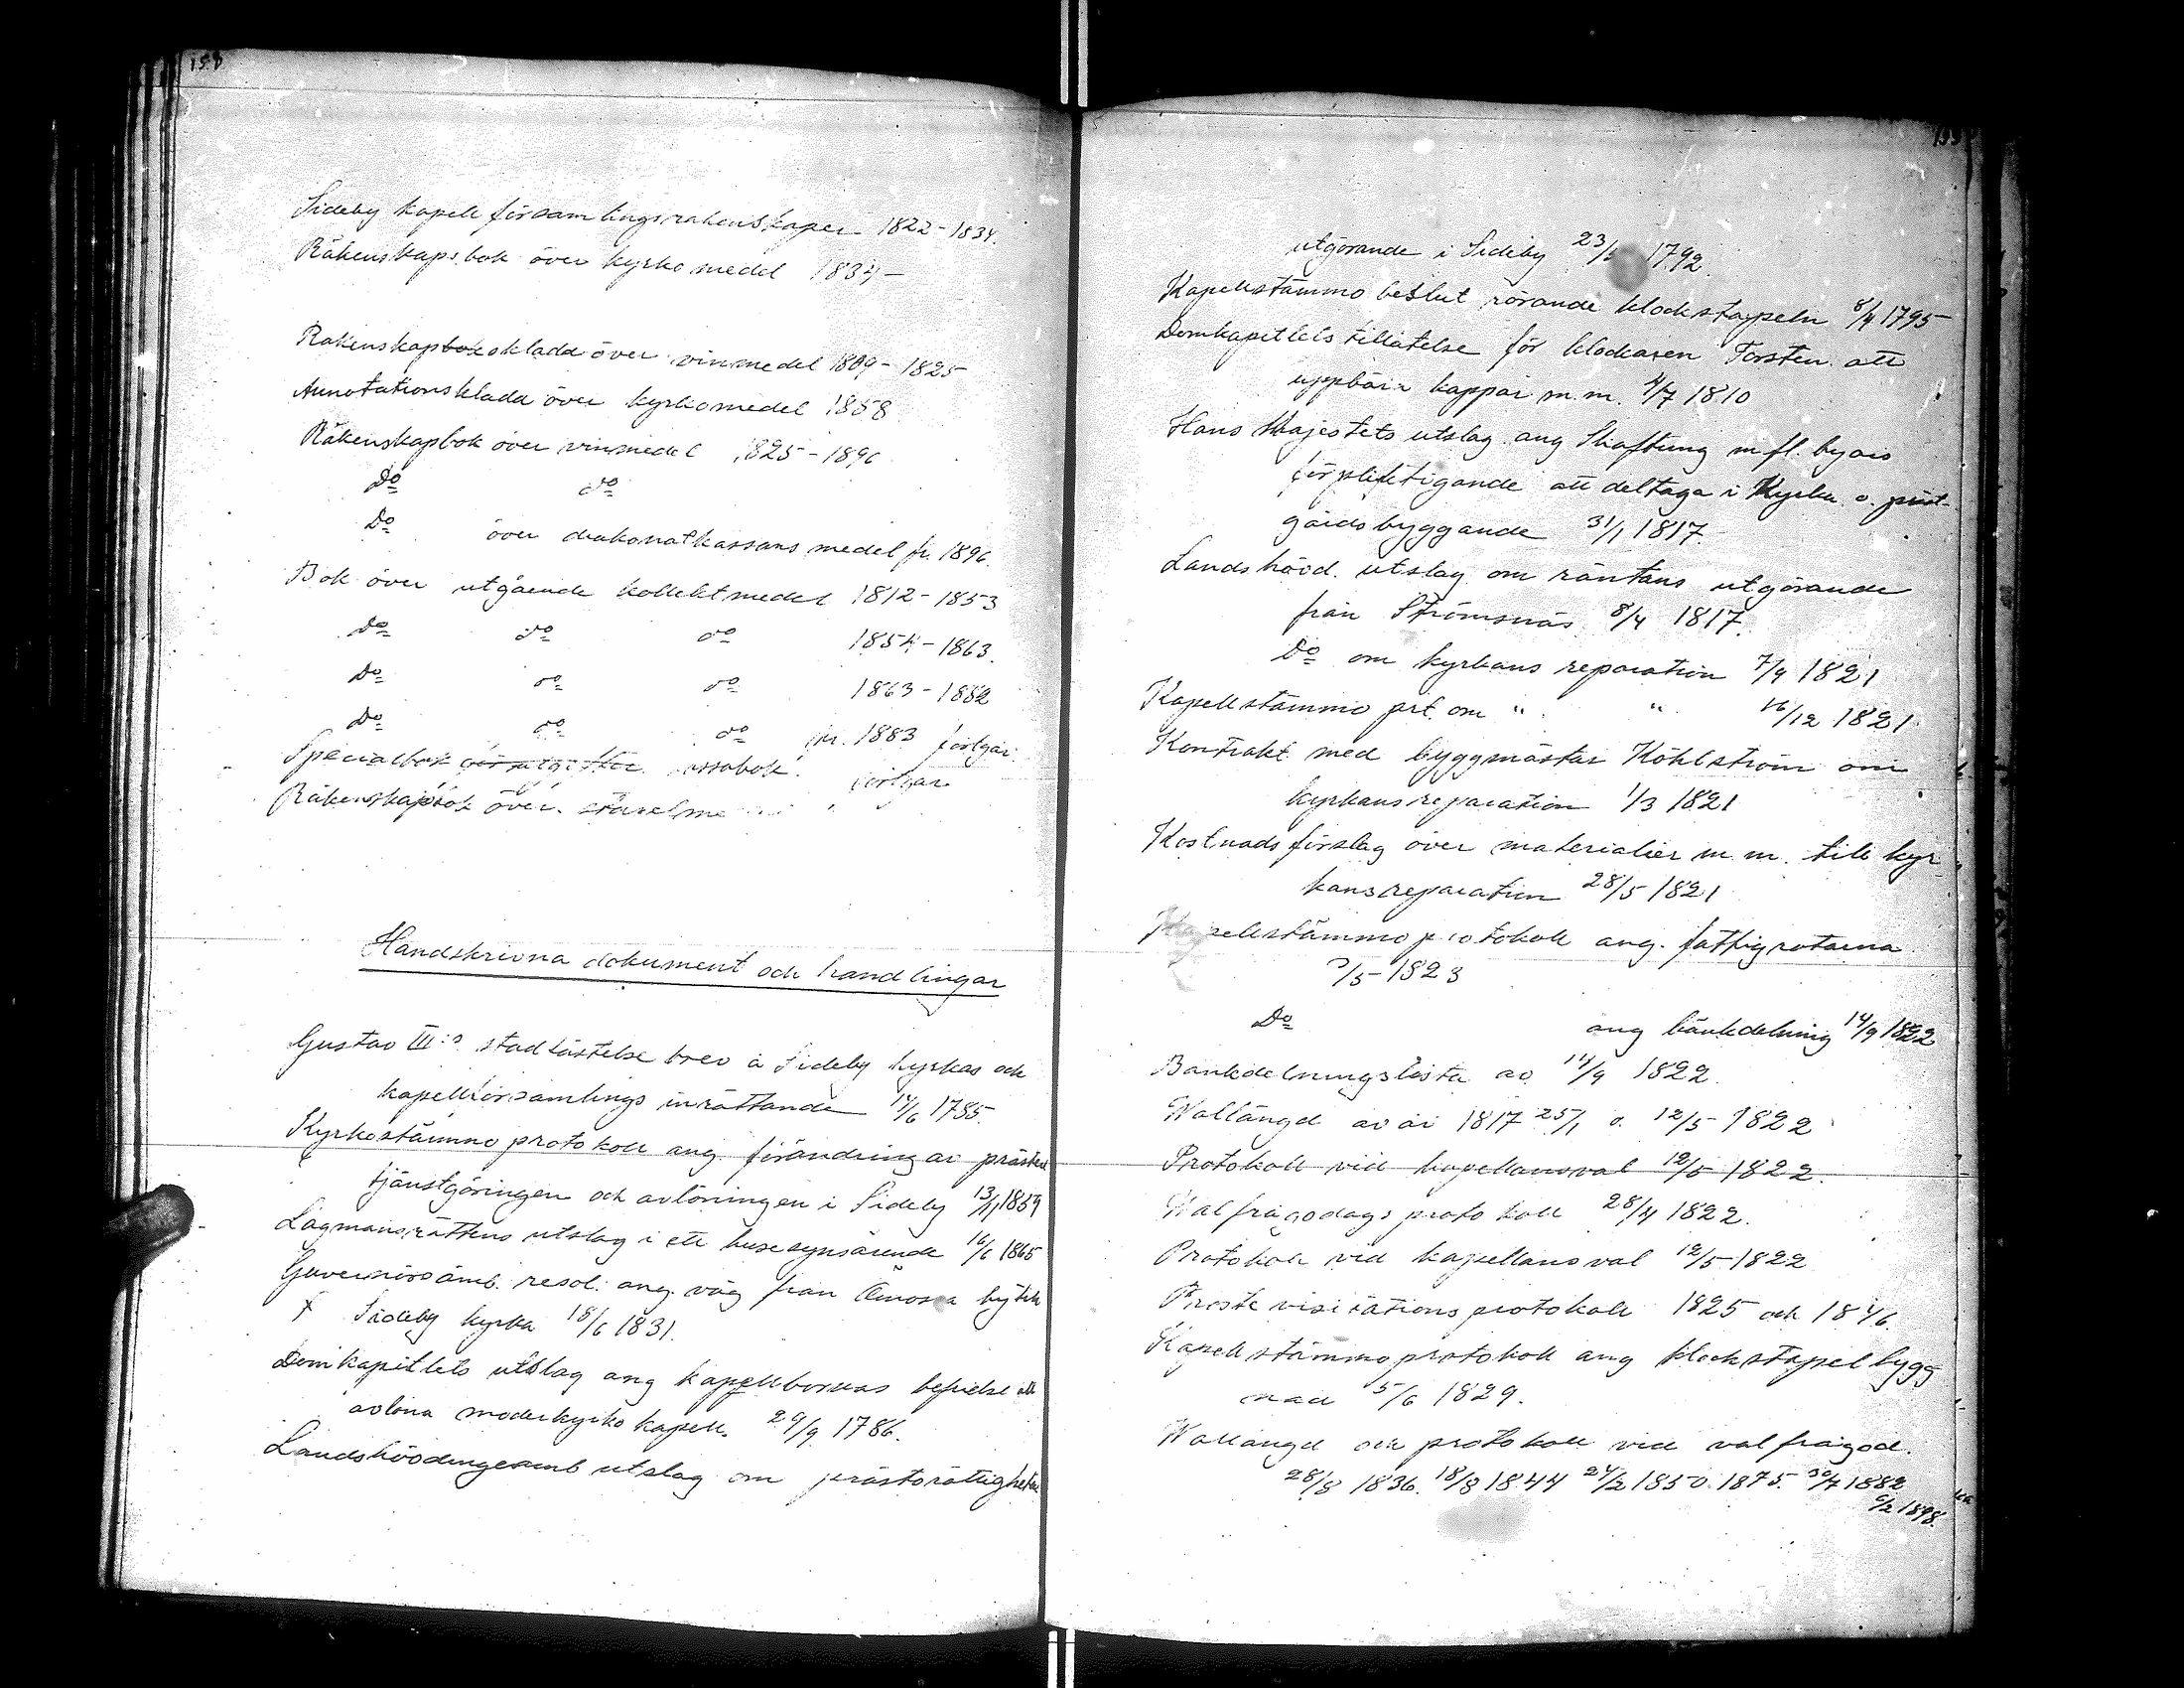 158
Sideby kapellförsamlingsräkenskaper 1822-1834.
Räkenskapsbok över kyrkomedel 1834-
Räkenskapbokskladd över vinmedel 1809-1825
Annotationskladd över kyrkomedel 1858
Räkenskapbok över vinmedel 1825-1896
Do do
Do över diakonatkassans medel fr. 1896.
Bok över utgående kollektmedel 1812-1853
Do do do 1854-1863.
Do do do 1863-1882
Do do do fr. 1883 fortgår.
Specialbok fortgår
Räkenskapbok över
Handskrivna dokument och handlingar
Gustav III:s stadfästelse brev å Sideby kyrkas och
kapellförsamlings inrättande 14/6 1785.
Kyrkostämmoprotokoll ang. förändring av prästen
tjänstgöringen och avlöningen i Sideby 13/11 1859
Lagmansrättens utslag i ett husesynsärende 16/6 1865
Guvernörsämb. resol. ang. väg från Ömossa by till
Sideby kyrka 18/6 1831.
Domkapitlets utslag ang kapellbornas befrielse att
avlöna moderkyrko kapell. 29/9 1786.
Landshövdingeämb utslag om prästrättigheten
159
utgörande i Sideby 23/5 1792.
Kapellstämmo beslut rörande klockstapeln 8/4 1795
Domkapitlets tillåtelse för klockaren Torsten att
uppbära kappar m.m. 4/7 1810
Hans Majestets utslag ang Skaftung m fl. byars
förpliktigande att deltaga i Kyrko o. präst-
gårdsbyggande 31/1 1817.
Landshövd. utslag om räntans utgörande
från Strömsnäs 8/4 1817.
Do om kyrkans reparation 7/9 1821
Kapellstämmo prt. om " " 16/12 1821
Kontrakt med byggmästar Köhlström om
kyrkans reparation 1/3 1821
Kostnadsförslag över materialier m.m. till kyr-
kans reparation 28/5 1821
Kapellstämmoprotokoll ang. fattigrotarna
/5 1823
Do ang bänkdelning 14/9 1822
Bänkdelningslista av 14/9 1822.
Wallängd av år 1817 25/1 o. 12/5 1822
Protokoll vid kapellansval 12/5 1822.
Walfrågodags protokoll 28/4 1822.
Protokoll vid kapellansval 12/5 1822
Prostevisitationsprotokoll 1825 och 1846.
Kapellstämmoprotokoll ang klockstapelbygg
nad 5/6 1829.
Wallängd och protokoll vid valfrågod.
28/8 1836. 18/8 1844 24/2 1850. 1875. 30/7 1882
6/2 1898.